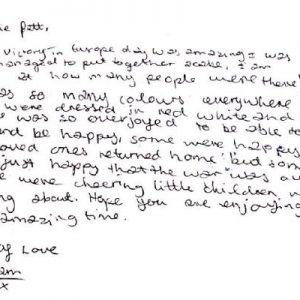 ie Patt,
Victory in Europe day was amazing I was
managed to put together scale, I am
at how many people were there
as so many colours everywhere
were dressed in red white and
was so overjoyed to be able to
nd be happy, some were happy
oved ones returned home but som
just happy that the war was ov
e were cheering little children w
ng about. Hope you are enjoying
amazing time.
Love
am
x